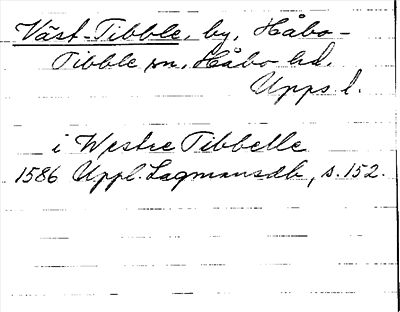 Väst-Tibble, by, Håbo-
Tibble sn, Håbo hd.
Upps. l.
i Westre Tibbelle
1586 Uppl. Lagmansdb, s. 152.